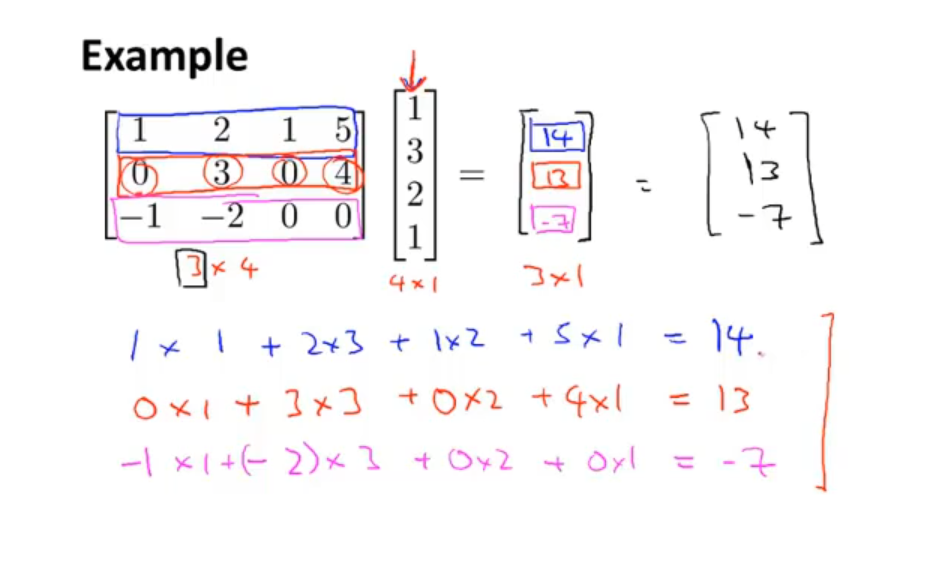 Example
[1 2 1 5; 0 3 0 4; −1 −2 0 0] [1; 3; 2; 1] = [14; 13; -7] = [14; 13; -7]
3 × 4 4 × 1 3 × 1
1 × 1 + 2×3 + 1×2 + 5×1 = 14.
0×1 + 3×3 + 0×2 + 4×1 = 13
-1 ×1+(- 2)× 3 + 0×2 + 0×1 = -7